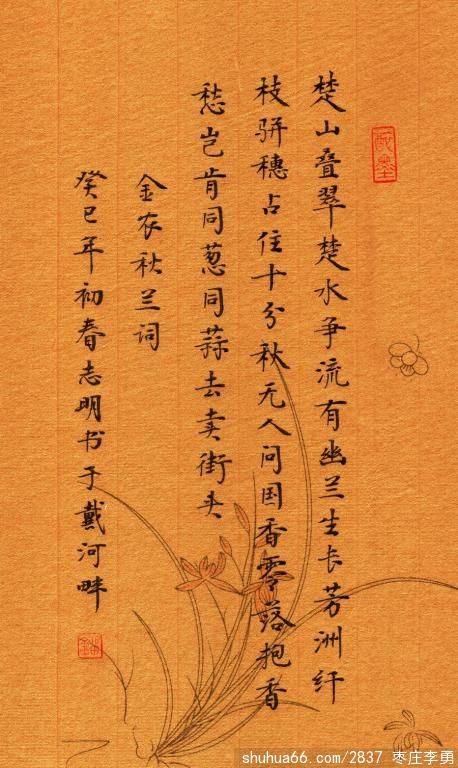 楚山叠翠楚水争流有幽兰生长芳洲纤
枝骈穗占住十分秋无人问国香零落抱香
愁岂肯同葱同蒜去卖街头
金农秋兰词
癸巳年初春志明书于戴河畔
shuhua66.com/2837 枣庄李勇